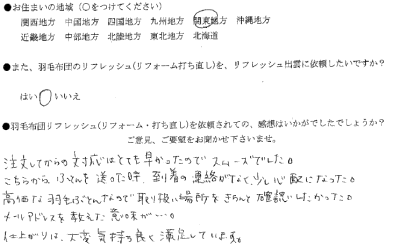 ●お住まいの地域(○をつけてください)
関西地方 中国地方 四国地方 九州地方 関東地方 沖縄地方
近畿地方 中部地方 北陸地方 東北地方 北海道
●また、羽毛布団のリフレッシュ(リフォーム打ち直し)を、リフレッシュ出雲に依頼したいですか?
はい いいえ
●羽毛布団リフレッシュ(リフォーム・打ち直し)を依頼されての、感想はいかがでしたでしょうか?
ご意見、ご要望をお聞かせ下さいませ。
注文してからの対応はとても早かったのでスムーズでした。
こちらからふとんを送った時、到着の連絡がなく、少し心配になった。
高価な羽毛ふとんなので取り扱い場所をきちんと確認したかった。
メールアドレスを教えた意味が…。
仕上がりは、大変気持ち良く満足しています。